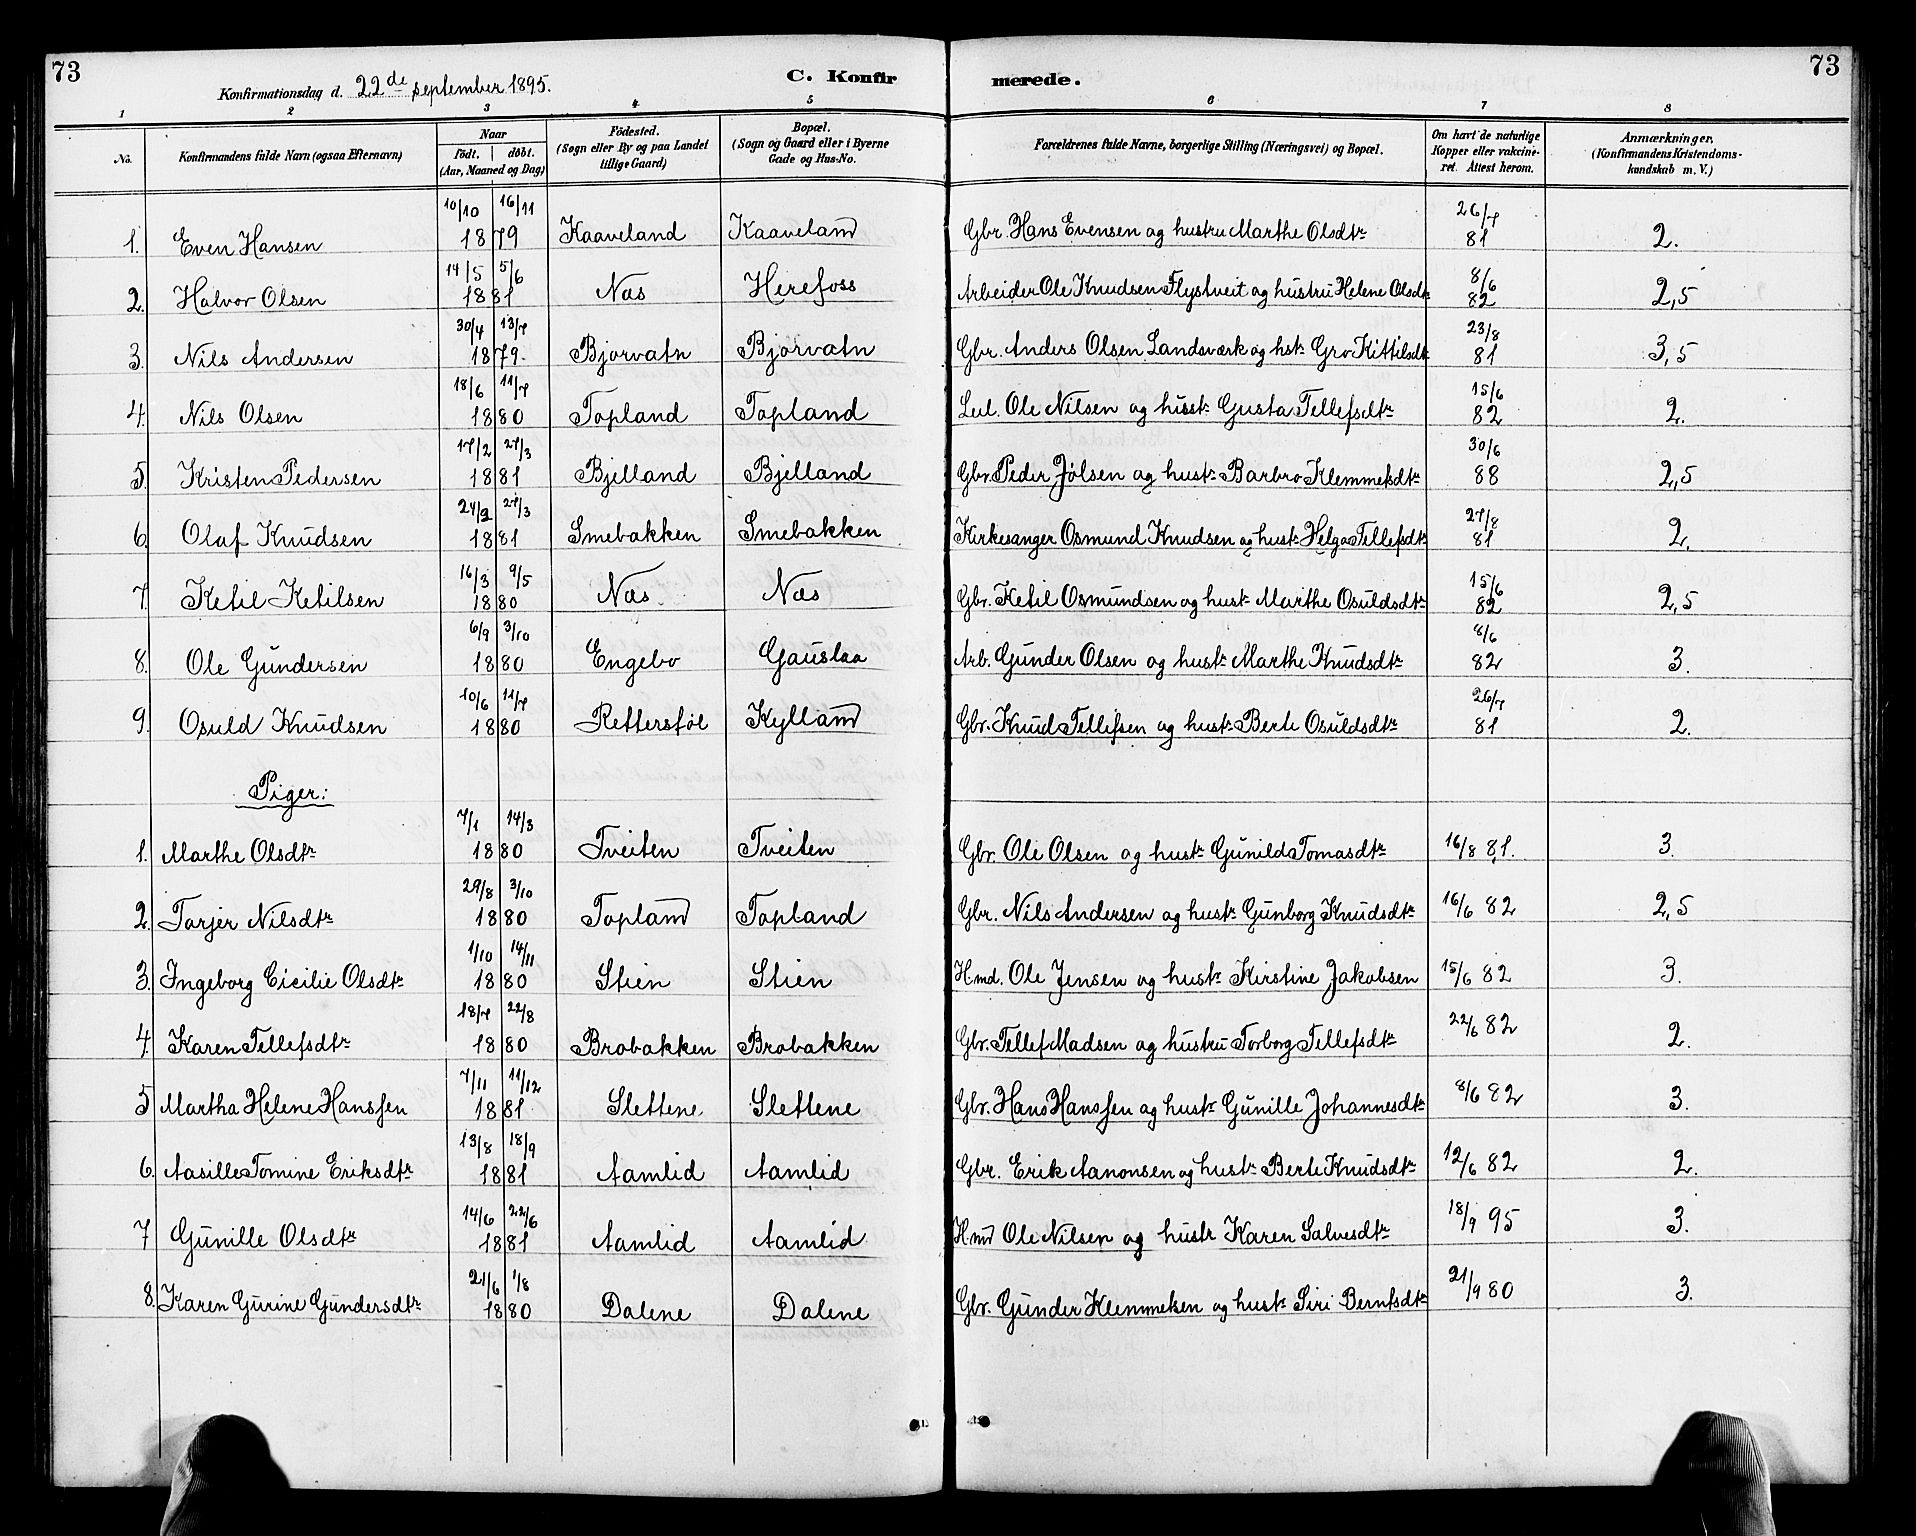 73
Konfirmationsdag d. 22de september 1895.
C. Konfirmerede.
73
1 2 3 4 5 6 7 8
No. | Konfirmandens fulde Navn (ogsaa Efternavn) | Naar Födt. | döbt. (Aar, Maaned og Dag) | Födested. (Sogn eller By og paa Landet tillige Gaard.) | Bopæl. (Sogn og Gaard eller i Byerne Gade og Hus-No. | Forældrenes fulde Navne, borgerlige Stilling (Næringsvei) og Bopæl. | Om havt de naturlige Kopper eller vaccineret. Attest herom. | Anmærkninger, (Konfirmandens Kristendomskundskab m. V.)
1. Even Hansen | 10/10 16/11 1879 | Kaaveland | Kaaveland | Gbr. Hans Evensen og hustru Marthe Olsdtr | 26/7 81 | 2.
2. Halvor Olsen | 14/5 5/6 1881 | Næs | Herefoss | Arbeider Ole Knudsen Flystveit og hustru Helene Olsdtr | 8/6 82 | 2,5
3. Nils Andersen | 30/4 13/7 1879. | Bjorvatn | Bjorvatn | Gbr. Anders Olsen Landsværk og hstr Gro Kittilsdtr | 23/8 81 | 3,5
4. Nils Olsen | 18/6 11/7 1880 | Topland | Topland | Leil. Ole Nilsen og hustr Gusta Tellefsdtr | 15/6 82 | 2.
5. Kristen Pedersen | 17/2 27/3 1881 | Bjelland | Bjelland | Gbr. Peder Jølsen og hustr Barbro Klemmetsdtr | 30/6 88 | 2,5
6. Olaf Knudsen | 24/2 27/3 1881 | Smebakken | Smebakken | Kirkesanger Osmund Knudsen og hustr Helga Tellefsdtr | 27/8 81 | 2.
7. Ketil Ketilsen | 16/3 9/5 1880 | Næs | Næs | Gbr. Ketil Osmundsen og hustr Marthe Osuldsdtr | 15/6 82 | 2,5
8. Ole Gundersen | 6/9 3/10 1880 | Engebo | Gauslaa | Arb. Gunder Olsen og hustr Marthe Knudsdtr | 8/6 82 | 3.
9. Osuld Knudsen | 10/6 11/7 1880 | Rettersføl | Kylland | Gbr. Knud Tellefsen og hustr Berte Osuldsdtr | 26/7 81 | 2.
Piger:
1. Marthe Olsdtr | 7/1 14/3 1880 | Tveiten | Tveiten | Gbr. Ole Olsen og hustr Gunild Tomasdtr | 16/8 81. | 3.
2. Tarjer Nilsdtr | 29/8 3/10 1880 | Topland | Topland | Gbr. Nils Andersen og hustr Gunborg Knudsdtr | 16/6 82 | 2,5
3. Ingeborg Cicilie Olsdtr | 1/10 14/11 1880 | Stien | Stien | Hmd. Ole Jensen og hustr Kirstine Jakobsen | 15/6 82 | 3.
4. Karen Tellefsdtr | 18/7 22/8 1880 | Brobakken | Brobakken | Gbr. Tellef Madsen og hustru Torborg Tellefsdtr | 22/6 82 | 2.
5 Martha Helene Hanssen | 7/11 11/12 1881 | Slettene | Slettene | Gbr. Hans Hanssen og hustr Gunille Johannesdtr | 8/6 82 | 3.
6. Aasille Tomine Eriksdtr | 13/8 18/9 1881 | Aamlid | Aamlid | Gbr. Erik Aanonsen og hustr Berte Knudsdtr | 12/6 82 | 2.
7 Gunille Olsdtr | 14/6 22/6 1881 | Aamlid | Aamlid | Hmd Ole Nilsen og hustr Karen Salvesdtr | 18/9 95 | 3.
8. Karen Gurine Gundersdtr | 21/6 1/8 1880 | Dalene | Dalene | Gbr. Gunder Klemmetsen og hustr Siri Berntsdtr | 21/9 80 | 3.